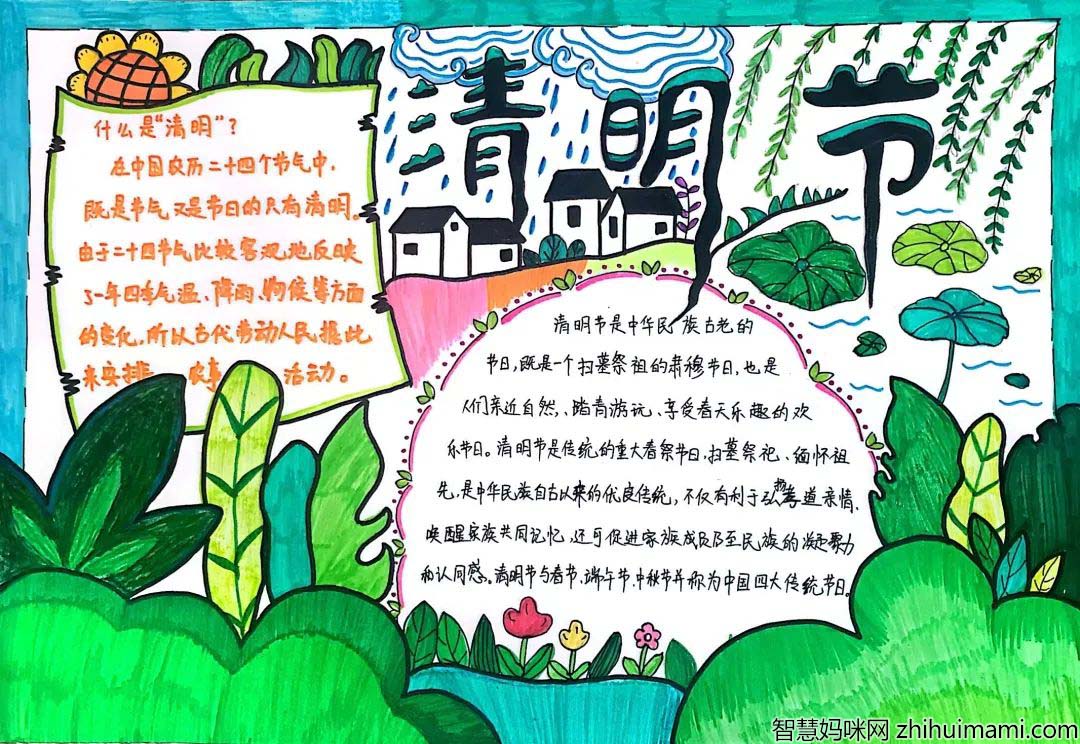 清明节
什么是"清明"？
在中国农历二十四个节气中，
既是节气又是节日的只有清明。
由于二十四节气比较客观地反映
了一年四季气温、降雨、物候等方面
的变化，所以古代劳动人民据此
来安排 农事 活动。
清明节是中华民族古老的
节日，既是一个扫墓祭祖的肃穆节日，也是
人们亲近自然、踏青游玩、享受春天乐趣的欢
乐节日。清明节是传统的重大春祭节日，扫墓祭祀、缅怀祖
先，是中华民族自古以来的优良传统，不仅有利于弘扬孝道亲情、
唤醒家族共同记忆，还可促进家族成员乃至民族的凝聚力
和认同感。清明节与春节、端午节、中秋节并称为中国四大传统节日。
智慧妈咪网 zhihuimami.com